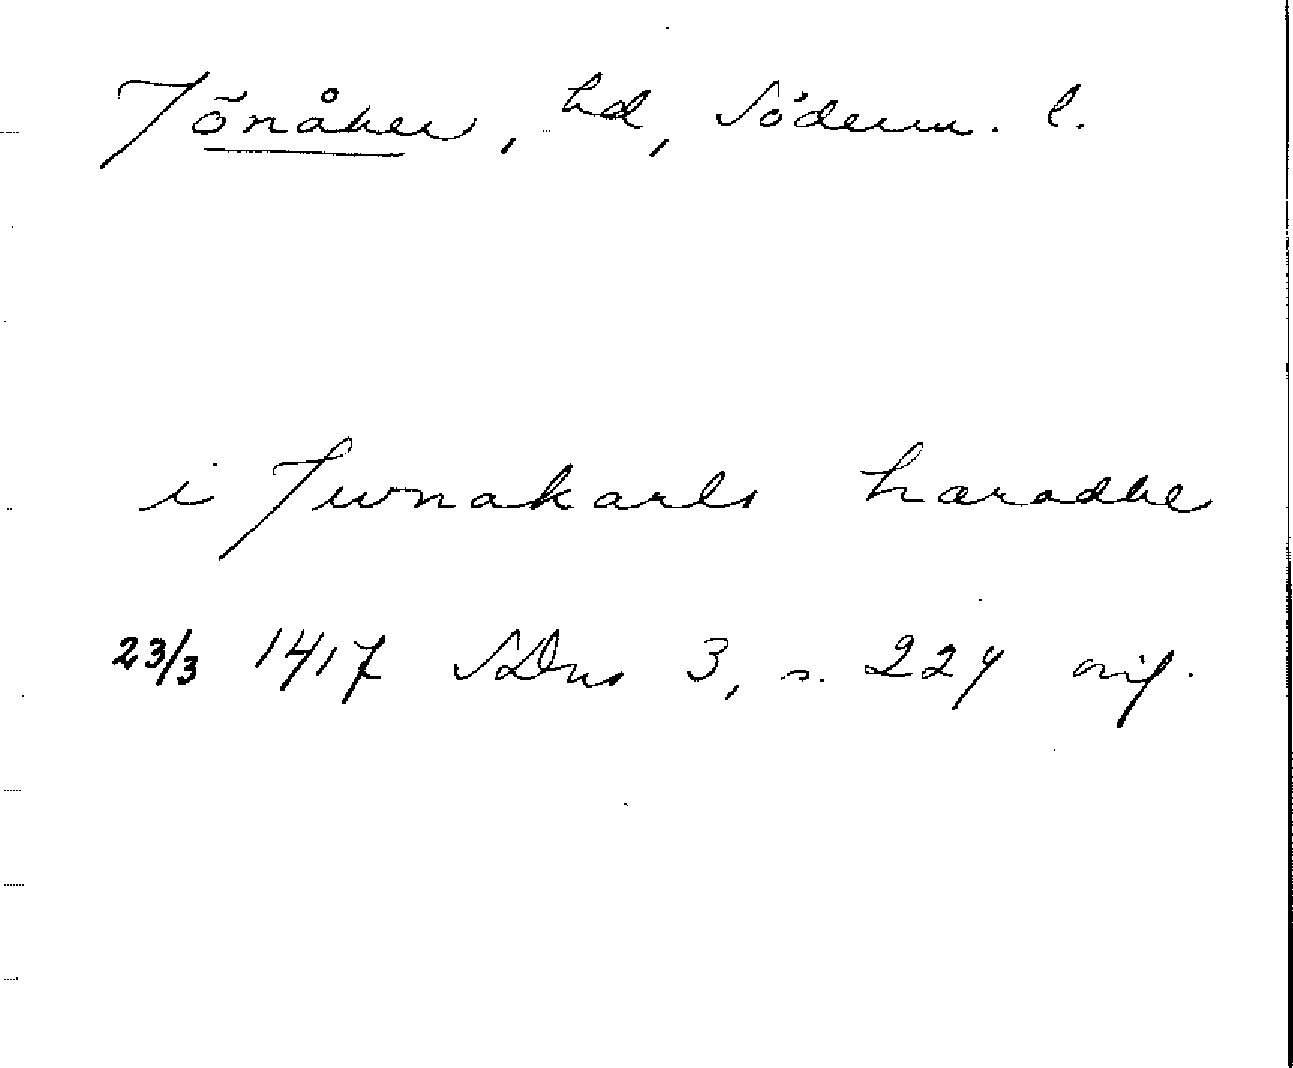 Jönåker, hd, Söderm. l.
i Jwnakarls haradhe
23/3 1417 SDns 3, s. 224 orig.